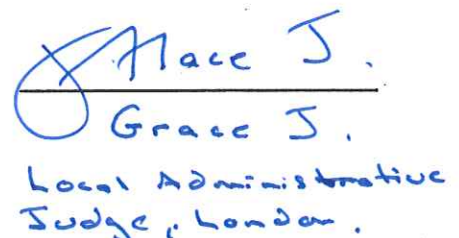 Grace J.
Grace J.
Local Administrative
Judge, London.